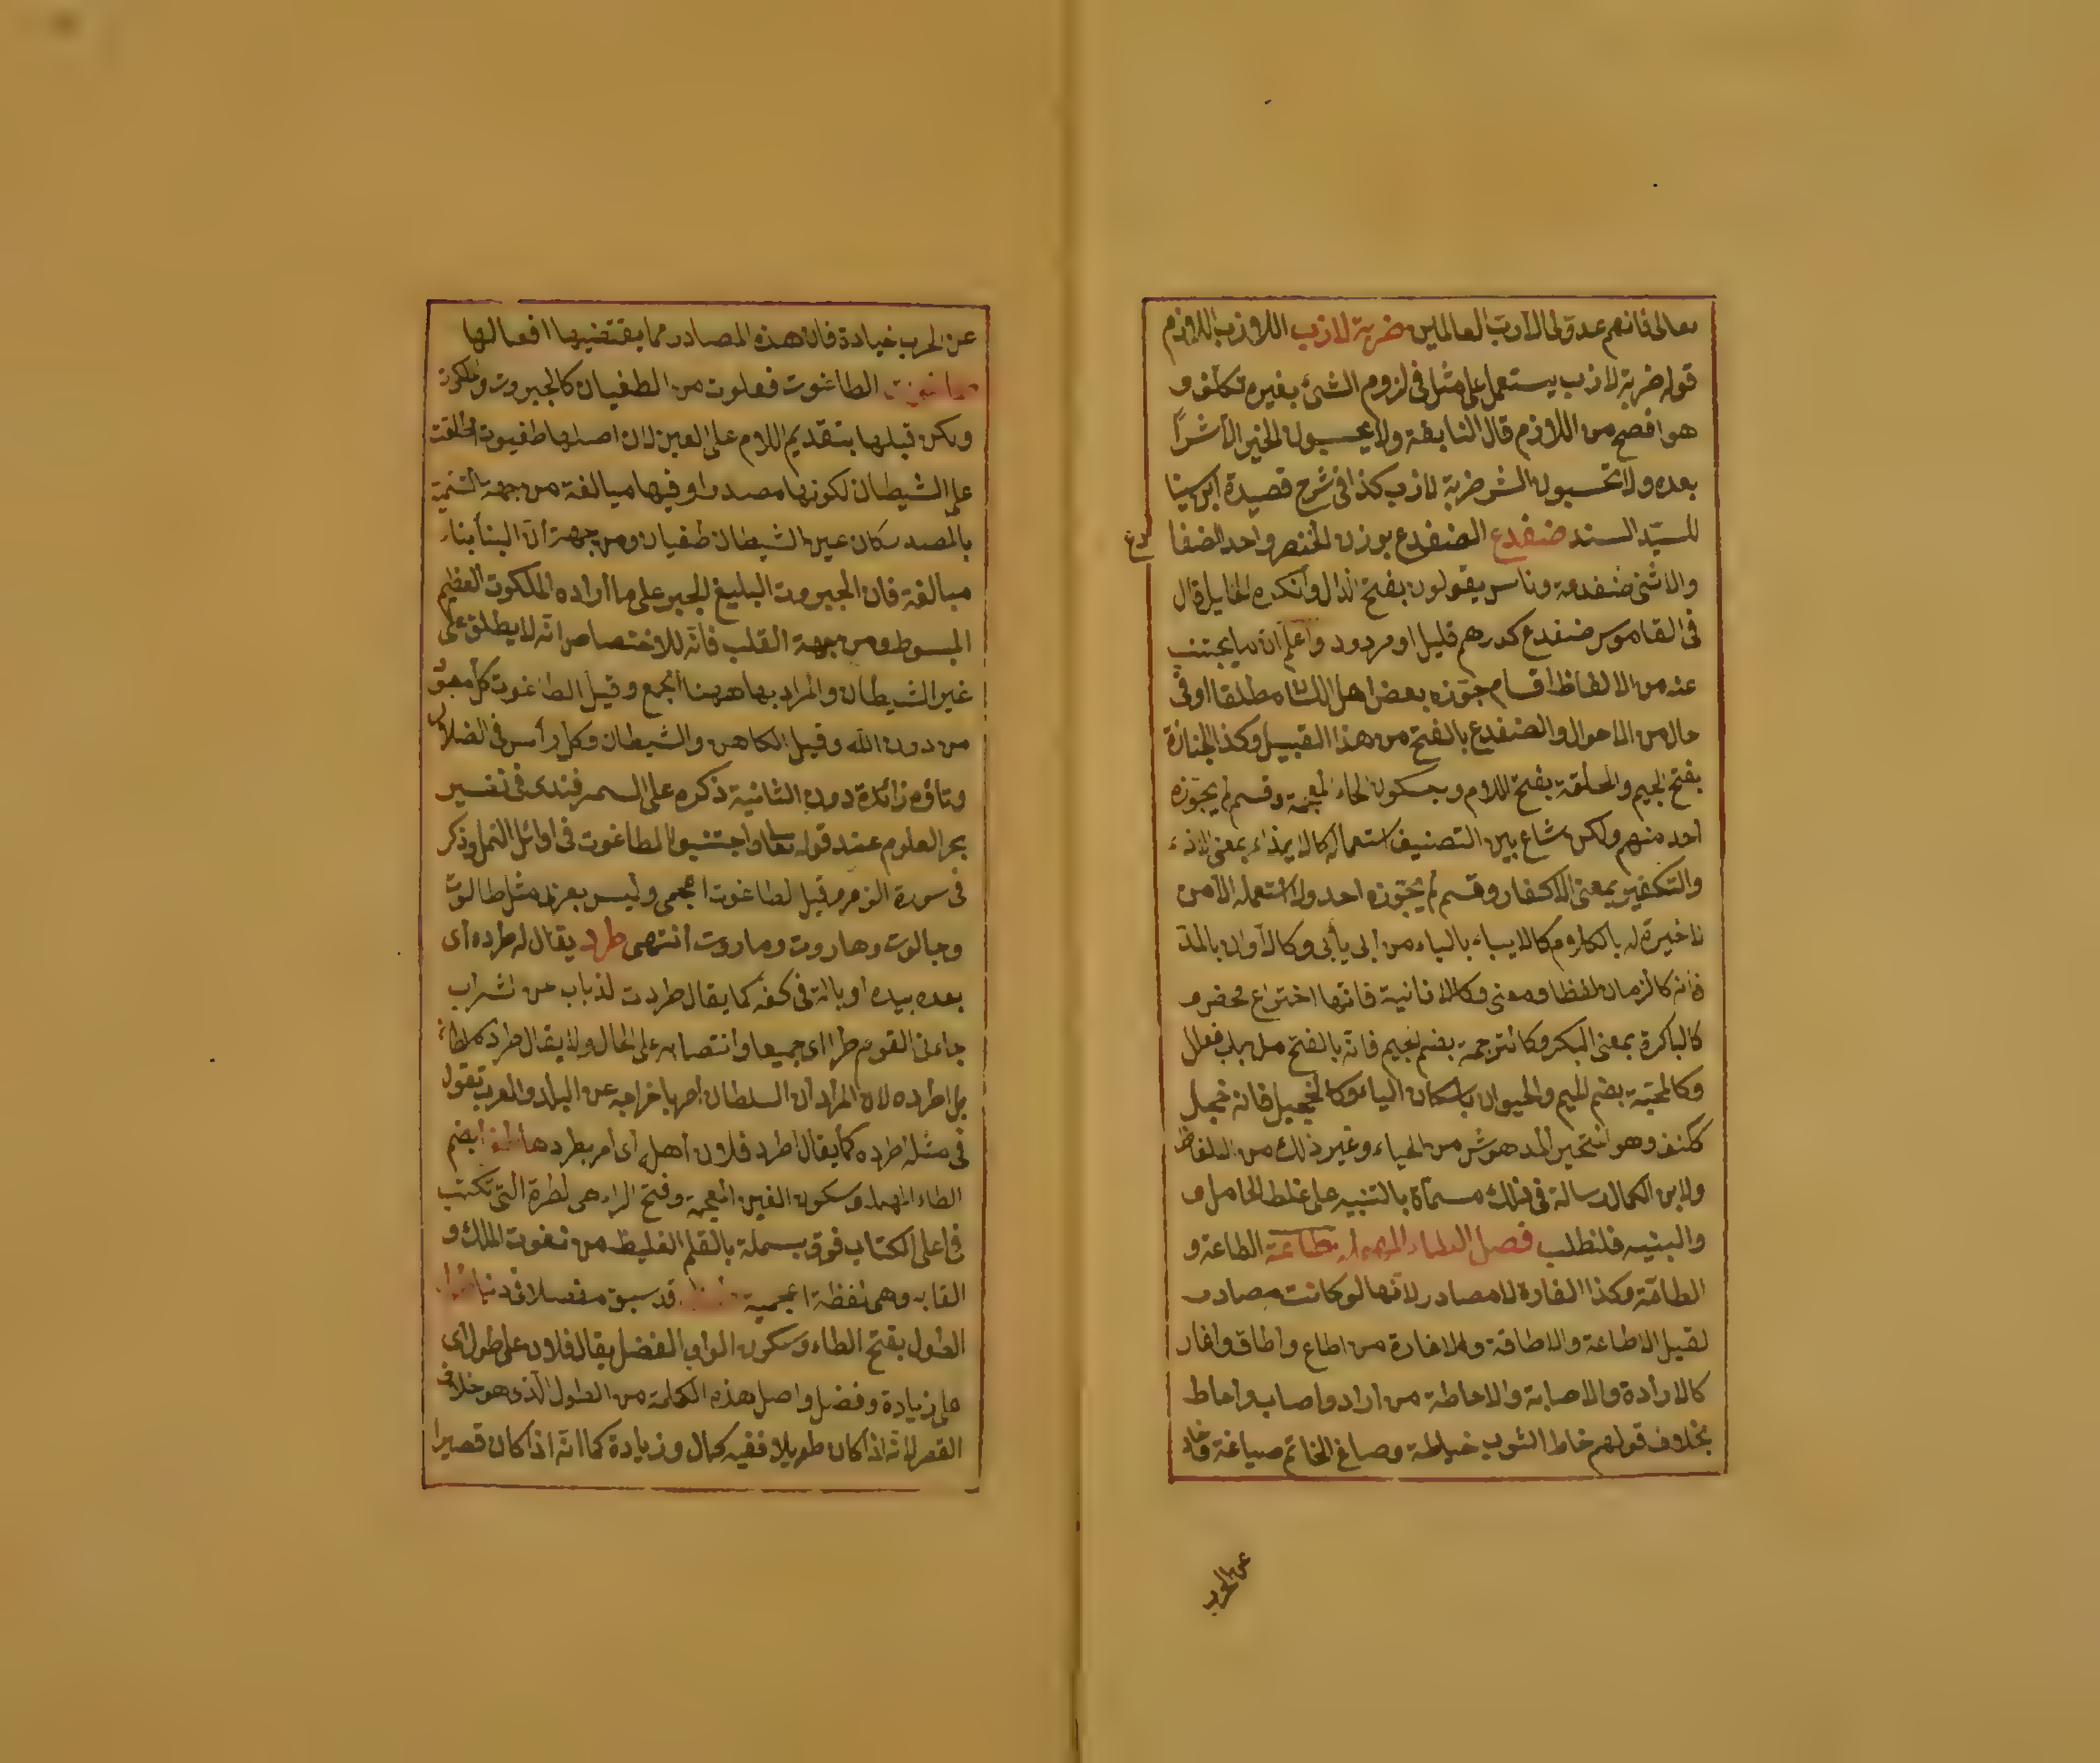 تعالى فانهم عدو لى الا رب العالمين ضربة لازب اللازب اللازم
قوله ضربة لازب يستعمل على مثلا فى لزوم الشئ بغيره تكلف و
هو افصح من اللازم قال النابغة ولا يحسبون الخير لا شرا
بعده ولا تحسبون الشر ضربة لازب كذا فى شرح قصيدة ابن سينا
للسيد السند ضفدع الضفدع بوزن الخنصر واحد الضفا
دع
والانثى ضفدعة وناس يقولون بفتح الدال وانكره الخليل قال
فى القاموس ضفدع كدرهم قليل او مردود واعلم ان ما يجتنب
عنه من الالفاظ اقسام جوزه بعض اهل اللسان مطلقا او فى
حال من الاحوال والضفدع بالفتح من هذا القبيل وكذا الجنازة
بفتح الجيم والحلقة بفتح اللام وبسكون الخاء المعجمة وقسم لم يجوزه
احد منهم ولكن شاع بين التصنيف استعماله كالايذاء بمعنى الاذى
والتكفير بمعنى الاكفار وقسم لم يجوزه احد ولا استعمله الا من
لا خيرة له بالكلام كالايباء بالياء من ابى يأبى وكالاوان بالمد
فانه كالزمان لفظا ومعنى وكالانانية فانها اختراع محض و
كالباكرة بمعنى البكر وكالترجمة بضم الجيم فانه بالفتح من باب فعلل
وكالمحبة بضم الميم والحيوان باسكان الياء وكالخجيل فانه خجل
ككنف وهو المتحير المدهوش من الحياء وغير ذلك من الالفاظ
ولابن الكمال رسالة فى ذلك مسماة بالتنبيه على غلط الخامل و
والبنيه فلنطلب فصل الطاء المهملة طاعة الطاعة و
الطاقة وكذا الغارة لا مصادر لانها لو كانت مصادر
لقيل الاطاعة والاطاقة والاغارة من اطاع واطاق واغار
كالارادة والاصابة والاحاطة من اراد واصاب واحاط
بخلاف قولهم خاط الثوب خياطة وصاغ الخاتم صياغة وحاد
عن الحرب
عن الحرب حيادة فان هذه المصادر مما يقتضيها افعالها
طاغوت الطاغوت فعلوت من الطغيان كالجبروت والملكوت
ولكن قبلها بتقديم اللام على العين لان اصلها طغيوت اطلقت
على الشيطان لكونها مصدرا وفيها مبالغة من جهة التسمية
بالمصدر كان عين الشيطان طغيان ومن جهة ان البنأ بناء
مبالغة فان الجبروت البليغ الجبر على ما اراده الملكوت العظيم
المبسوط ومن جهة القلب فانه للاختصاص انه لا يطلق على
غير الشيطان والمراد بها ههنا الجمع وقيل الطاغوت كل معبود
من دون الله وقيل الكاهن والشيطان وكل رأس فى الضلال
وتاؤه زائدة دون الثانية ذكره على السمرقندى فى تفسير
بحر العلوم عند قوله تعالى واجتنبوا الطاغوت فى اوائل النمل وذكر
فى سورة الزمر وقيل الطاغوت اعجمى وليس بعربى مثل طالوت
وجالوت وهاروت وماروت انتهى طرد يقال له طرده اى
بعده بيده او بالة فى كفه كما يقال طردت الذباب عن الشراب
جاءنى القوم طرا اى جميعا وانتصابه على الحال ولا يقال طرده السلطان
بل اطرده لان المراد ان السلطان امر باخراجه عن البلد والعرب تقول
فى مثله اطرده كما يقال اطرد فلان اهله اى امر بطردها طغرا بضم
الطاء المهملة وسكون الغين المعجمة وفتح الراء هى الطرة التى تكتب
فى اعلى الكتاب فوق بسملة بالقلم الغليظ من نعوت الملك و
القابه وهى لفظة اعجمية قد سبق مفصلا
الطول بفتح الطاء وسكون الواو الفضل يقال فلان على طول اى
على زيادة وفضل واصل هذه الكلمة من الطول الذى هو خلاف
القصر لانه اذا كان طويلا ففيه كمال وزيادة كما انه اذا كان قصيرا